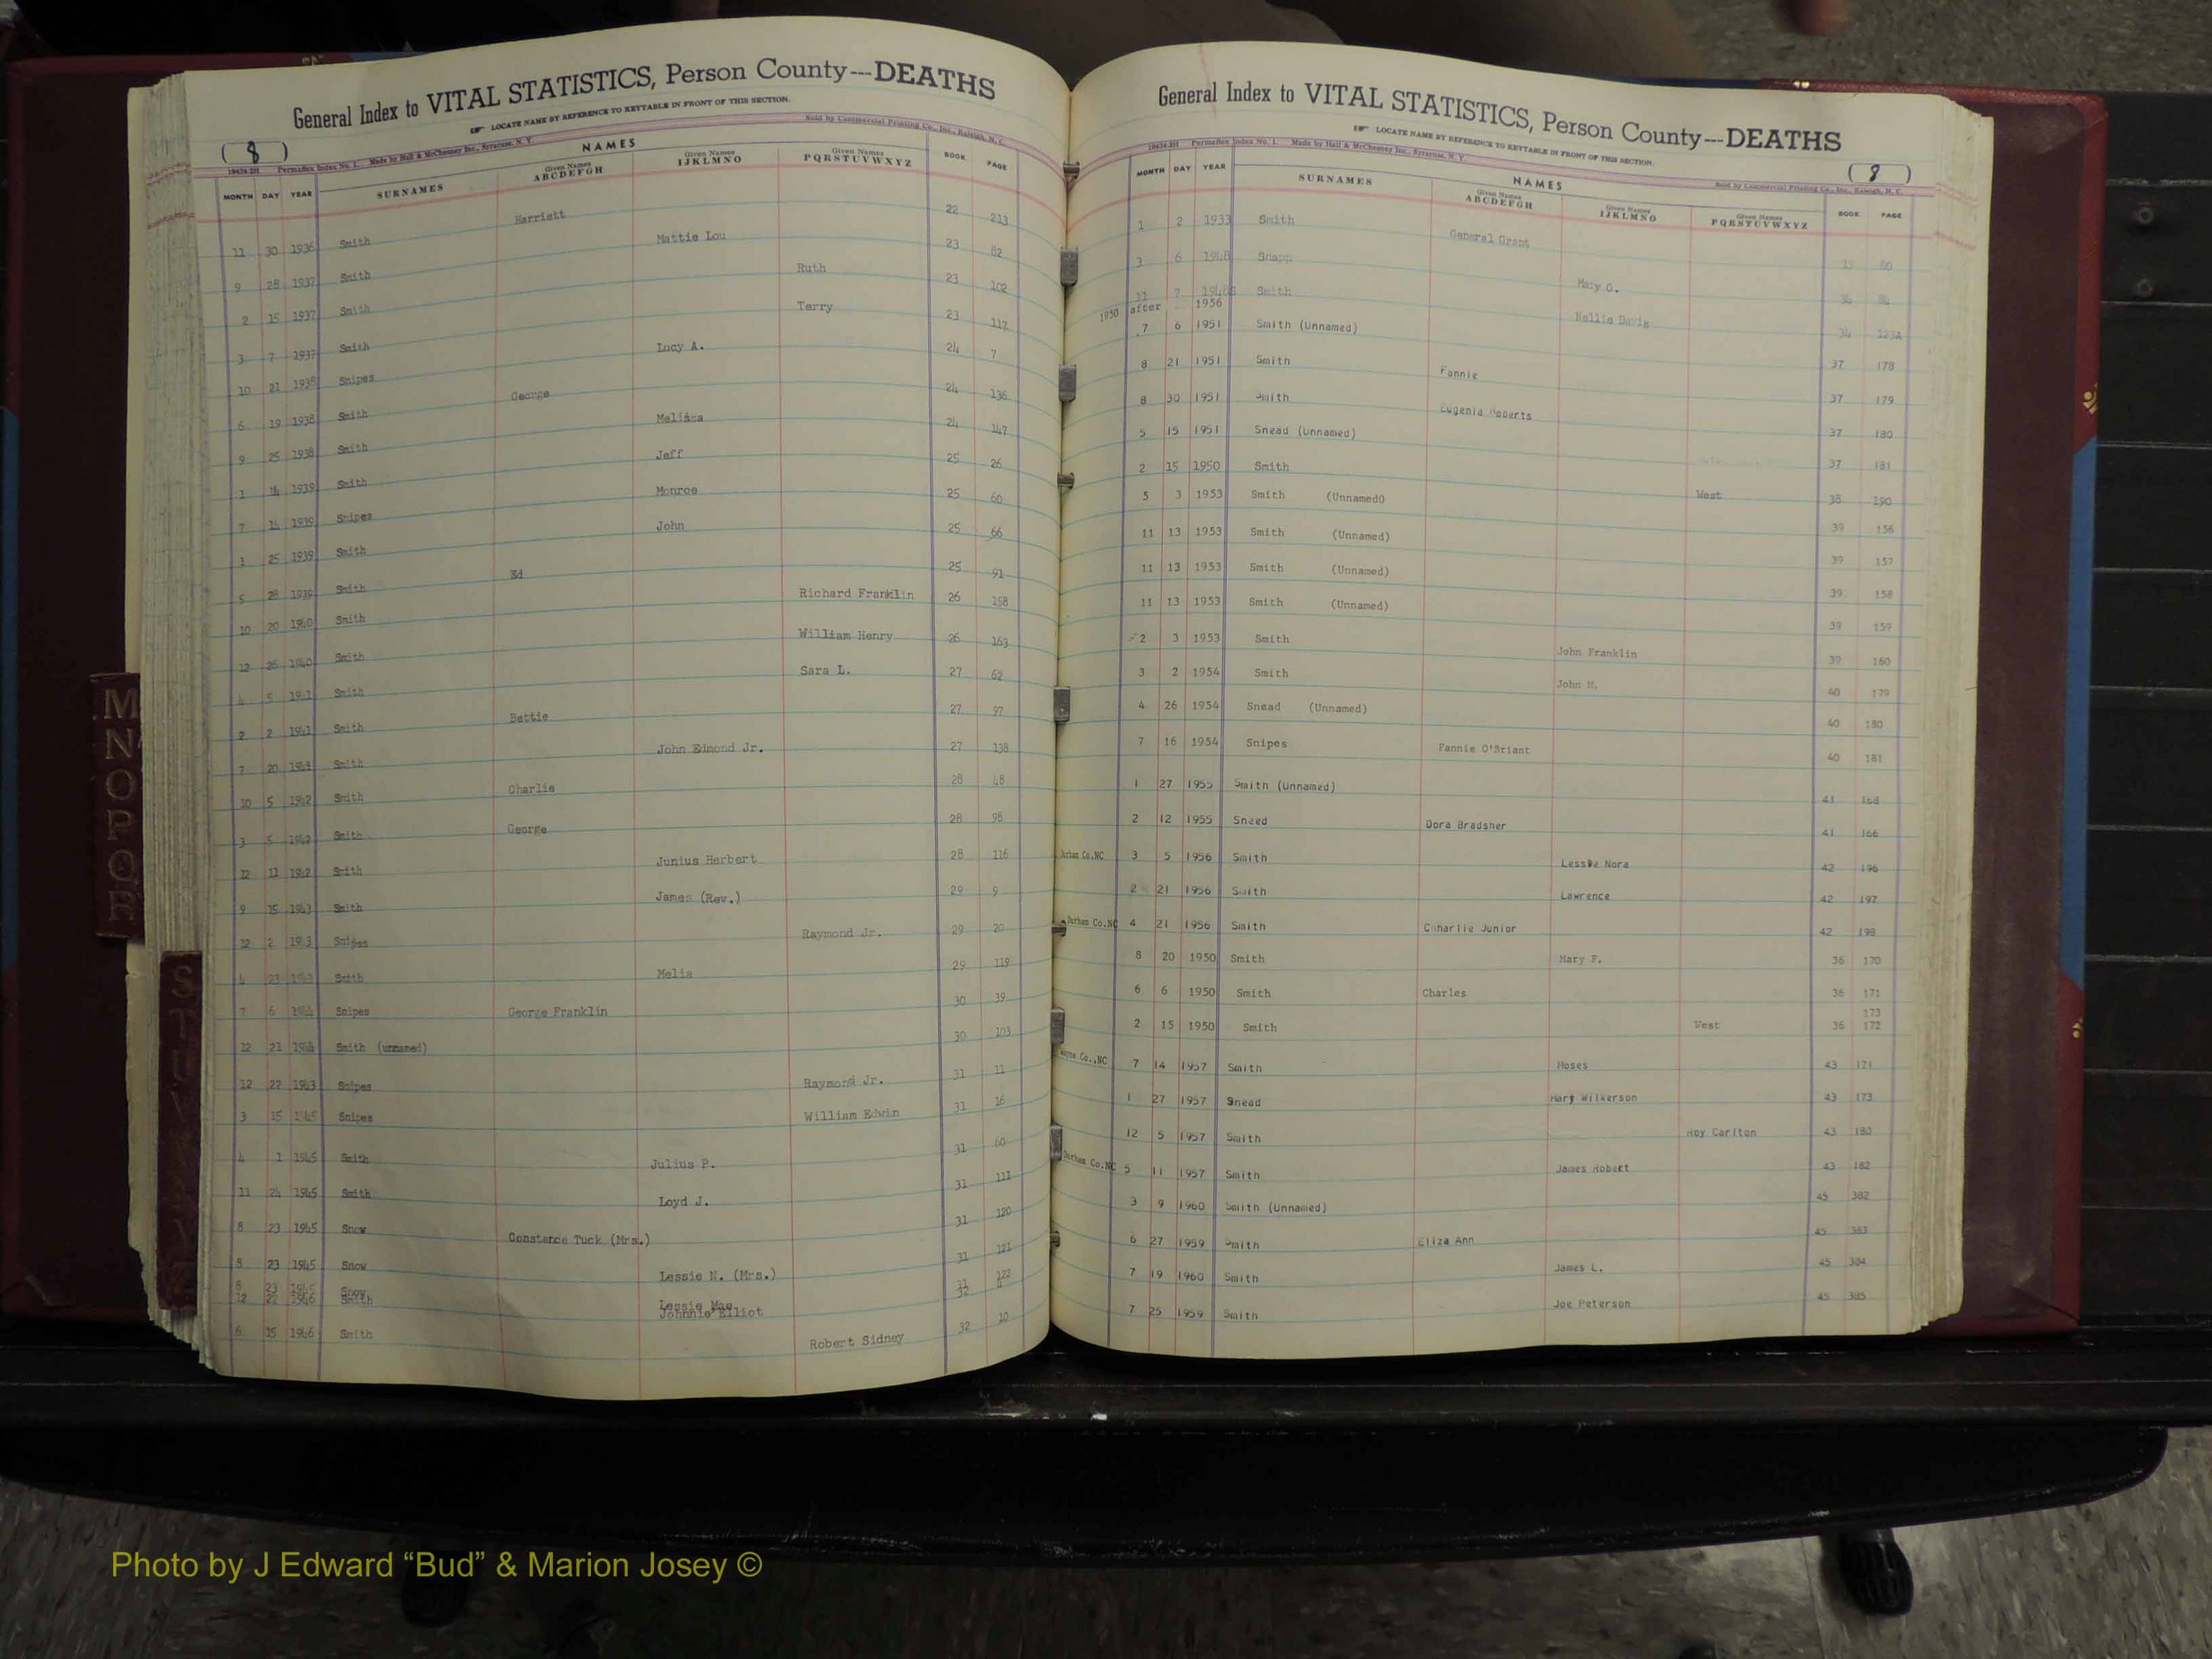 General Index to VITAL STATISTICS, Person County---DEATHS
LOCATE NAME BY REFERENCE TO KEYTABLE IN FRONT OF THIS SECTION.
( 8 )
19434-2H Permaflex Index No. 1. Made by Hall & McChesney Inc., Syracuse, N. Y. Sold by Commercial Printing Co., Inc., Raleigh, N. C.
NAMES
MONTH DAY YEAR SURNAMES Given Names ABCDEFGH Given Names IJKLMNO Given Names PQRSTUVWXYZ BOOK PAGE
11 30 1936 Smith Harriett 22 213
9 28 1937 Smith Mattie Lou 23 82
2 15 1937 Smith Ruth 23 102
3 7 1937 Smith Terry 23 117
10 21 1938 Snipes Lucy A. 24 7
6 19 1938 Smith George 24 136
9 25 1938 Smith Melissa 24 147
1 14 1939 Smith Jeff 25 26
7 14 1939 Snipes Monroe 25 60
1 25 1939 Smith John 25 66
5 28 1939 Smith Ed 25 91
10 20 1940 Smith Richard Franklin 26 158
12 26 1940 Smith William Henry 26 163
4 5 1941 Smith Sara L. 27 62
2 2 1941 Smith Bettie 27 97
7 20 Smith John Edmond Jr. 27 138
10 5 1942 Smith Charlie 28 48
3 5 1942 Smith George 28 98
12 11 1942 Smith Junius Herbert 28 116
9 15 1943 Smith James (Rev.) 29 9
12 2 1943 Snipes Raymond Jr. 29 20
4 23 1943 Smith Melia 29 119
7 6 1944 Snipes George Franklin 30 39
12 21 1944 Smith (unnamed) 30 103
12 22 1943 Snipes Raymond Jr. 31 11
3 15 1945 Snipes William Edwin 31 16
4 1 1945 Smith Julius P. 31 60
11 24 1945 Smith Loyd J. 31 111
8 23 1945 Snow Constance Tuck (Mrs.) 31 120
8 23 1945 Snow Lessie N. (Mrs.) 31 121
8 23 1945 Snow Lessie Mae 31 122
12 1946 Smith Johnnie Elliot 32
6 15 1946 Smith Robert Sidney 32 10
General Index to VITAL STATISTICS, Person County---DEATHS
LOCATE NAME BY REFERENCE TO KEYTABLE IN FRONT OF THIS SECTION.
( 8 )
19434-2H Permaflex Index No. 1. Made by Hall & McChesney Inc., Syracuse, N. Y. Sold by Commercial Printing Co., Inc., Raleigh, N. C.
NAMES
MONTH DAY YEAR SURNAMES Given Names ABCDEFGH Given Names IJKLMNO Given Names PQRSTUVWXYZ BOOK PAGE
1 2 1933 Smith General Grant 19 80
3 6 1948 Snapp Mary O.
11 7 1948 Smith Nellie Davis 34 123A
1950 after 1956
7 6 1951 Smith (Unnamed) 37 178
8 21 1951 Smith Fannie 37 179
8 30 1951 Smith Eugenia Roberts 37 180
5 15 1951 Snead (Unnamed) 37 181
2 15 1950 Smith West 38 190
5 3 1953 Smith (Unnamed0 39 156
11 13 1953 Smith (Unnamed) 39 157
11 13 1953 Smith (Unnamed) 39 158
11 13 1953 Smith (Unnamed) 39 159
2 3 1953 Smith John Franklin 39 160
3 2 1954 Smith John M. 40 179
4 26 1954 Snead (Unnamed) 40 180
7 16 1954 Snipes Fannie O'Briant 40 181
1 27 1955 Smith (Unnamed) 41 168
2 12 1955 Sneed Dora Bradsher 41 166
Durham Co.NC 3 5 1956 Smith Lessie Nora 42 196
2 21 1956 Smith Lawrence 42 197
Durham Co.NC 4 21 1956 Smith Charlie Junior 42 198
8 20 1950 Smith Mary F. 36 170
6 6 1950 Smith Charles 36 171
173
2 15 1950 Smith West 36 172
Wayne Co.,NC 7 14 1957 Smith Moses 43 171
1 27 1957 Snead Mary Wilkerson 43 173
12 5 1957 Smith Roy Carlton 43 180
Durham Co.NC 5 11 1957 Smith James Robert 43 182
3 9 1960 Smith (Unnamed) 45 382
6 27 1959 Smith Eliza Ann 45 383
7 19 1960 Smith James L. 45 384
7 25 1959 Smith Joe Peterson 45 385
M
N
O
P
Q
R
S
T
U
V
Photo by J Edward “Bud” & Marion Josey ©